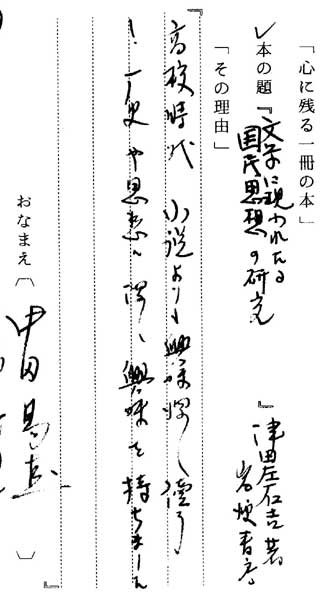 「心に残る一冊の本」
本の題『文学に現われたる
国民思想の研究』
津田左右吉著
岩波書店
「その理由」
『高校時代 小説よりも興味深く読み
史や思想に 興味を持ちました
』
おなまえ〔中田易直〕